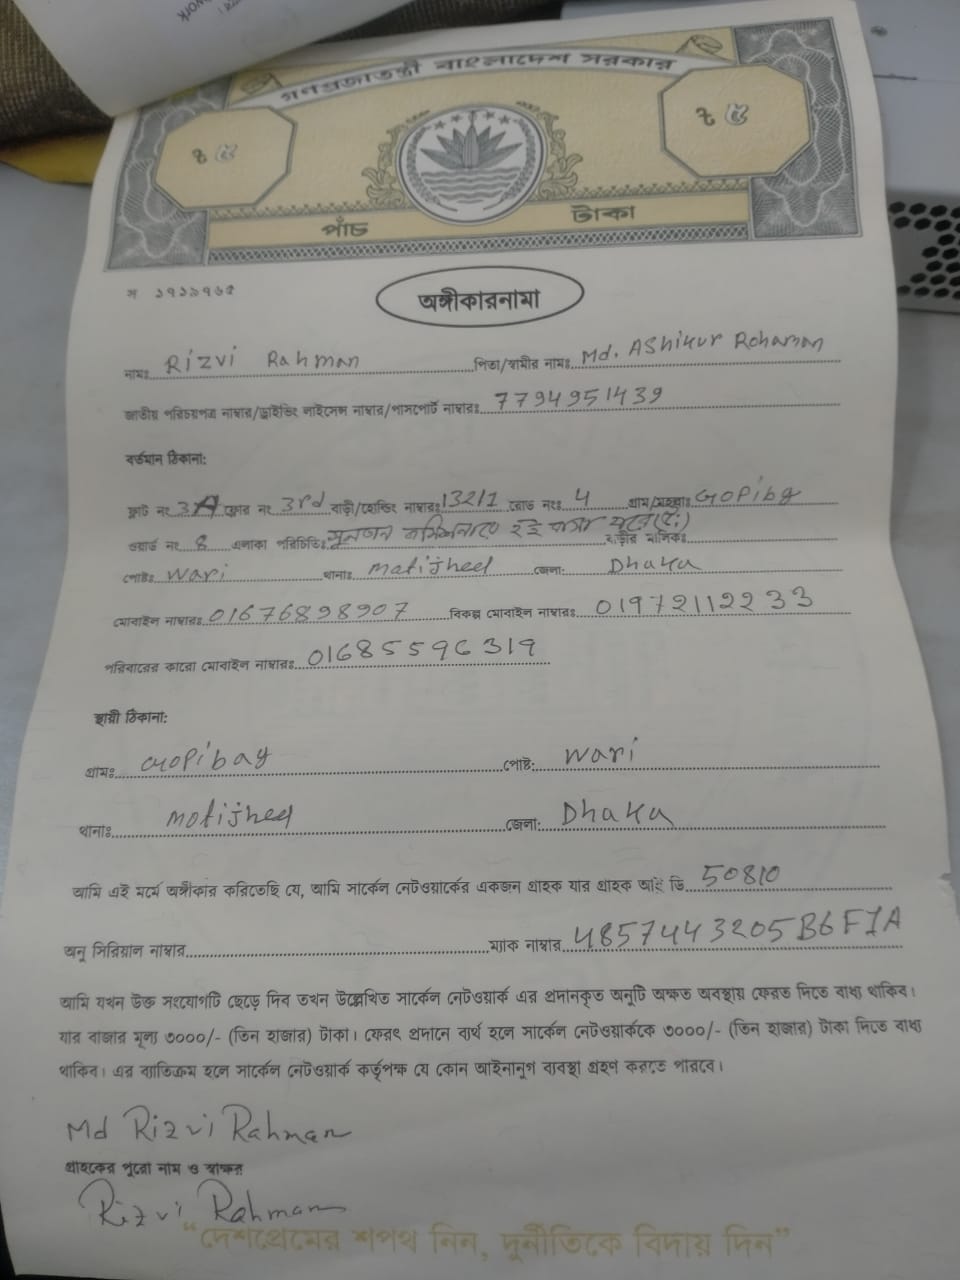 গণপ্রজাতন্ত্রী বাংলাদেশ সরকার
৳ ৫ ৳ ৫
পাঁচ টাকা
অঙ্গীকারনামা
নামঃ Rizvi Rahman পিতা/স্বামীর নামঃ Md. Ashikur Rohaman
জাতীয় পরিচয়পত্র নাম্বার/ড্রাইভিং লাইসেন্স নাম্বার/পাসপোর্ট নাম্বারঃ 7794951439
বর্তমান ঠিকানা:
ফ্লাট নং 3A ফ্লোর নং 3rd বাড়ী/হোল্ডিং নাম্বারঃ 132/1 রোড নংঃ 4 গ্রাম/মহল্লাঃ Gopibg
ওয়ার্ড নং 8 এলাকা পরিচিতিঃ বাড়ীর মালিকঃ
পোষ্টঃ Wari থানাঃ Matijheel জেলা: Dhaka
মোবাইল নাম্বারঃ 01676898907 বিকল্প মোবাইল নাম্বারঃ 01972112233
পরিবারের কারো মোবাইল নাম্বারঃ 01685596319
স্থায়ী ঠিকানা:
গ্রামঃ Gopibag পোষ্ট: Wari
থানাঃ Motijheel জেলা: Dhaka
আমি এই মর্মে অঙ্গীকার করিতেছি যে, আমি সার্কেল নেটওয়ার্কের একজন গ্রাহক যার গ্রাহক আই ডি 50810
অনু সিরিয়াল নাম্বার ম্যাক নাম্বার 4857443205B6F1A
আমি যখন উক্ত সংযোগটি ছেড়ে দিব তখন উল্লেখিত সার্কেল নেটওয়ার্ক এর প্রদানকৃত অনুটি অক্ষত অবস্থায় ফেরত দিতে বাধ্য থাকিব।
যার বাজার মূল্য ৩০০০/- (তিন হাজার) টাকা। ফেরৎ প্রদানে ব্যর্থ হলে সার্কেল নেটওয়ার্ককে ৩০০০/- (তিন হাজার) টাকা দিতে বাধ্য
থাকিব। এর ব্যতিক্রম হলে সার্কেল নেটওয়ার্ক কর্তৃপক্ষ যে কোন আইনানুগ ব্যবস্থা গ্রহণ করতে পারবে।
Md Rizvi Rahman
গ্রাহকের পুরো নাম ও স্বাক্ষর
Rizvi Rahman
“দেশপ্রেমের শপথ নিন, দুর্নীতিকে বিদায় দিন”